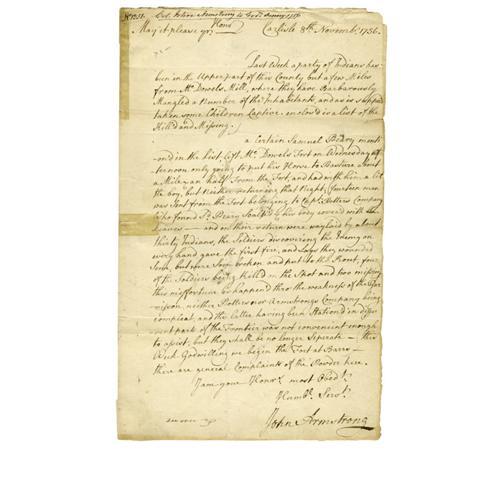 Col. John Armstrong to Gov. Denny 1756
May it please yr. Honr Carlisle 8th. Novembr. 1756.
Last Week a party of Indians has
been in the Upper part of this County but a few Miles
from Mc.Dowels Mill, where they have Barbarously
Mangled a Number of the Inhabitants, and as is suppos'd
taken some Children Captive, enclos'd is a list of the
Kill'd and Missing.
a Certain Samuel Peary menti-
-on'd in the list, left Mc.Dowels Fort on Wednesday af-
ternoon only going to put his Horse to Pasture about
a Mile an half from the Fort, and had with him a lit.
the boy, but Neither returning that Night, fourteen men
was Sent from the Fort belonging to Capt. Potters Company
who found Sd. Peary Scalp'd & his body cover'd with
Leaves — and on their return were waylaid by about
thirty Indians, the Soldiers discovering the Enemy on
every hand gave the first fire, and Says they wounded
Some, but were Soon broken and put to the Rout, four
of the Soldiers being Kill'd on the Spot and two missing
this misfortune has happen'd thro the weakness of the Gar
nison, neither Potters nor Armstrongs Company being
compleat, and the latter having been Station'd in differ
ent parts of the Frontier was not convenient enough
to assist, but they shall be no longer Seperate — this
Week Godwilling we begin the Fort at Barrs —
there are general Complaints of the Powder here.
I am your Honrs. most Obedt.
Humbl. Servt.
John Armstrong